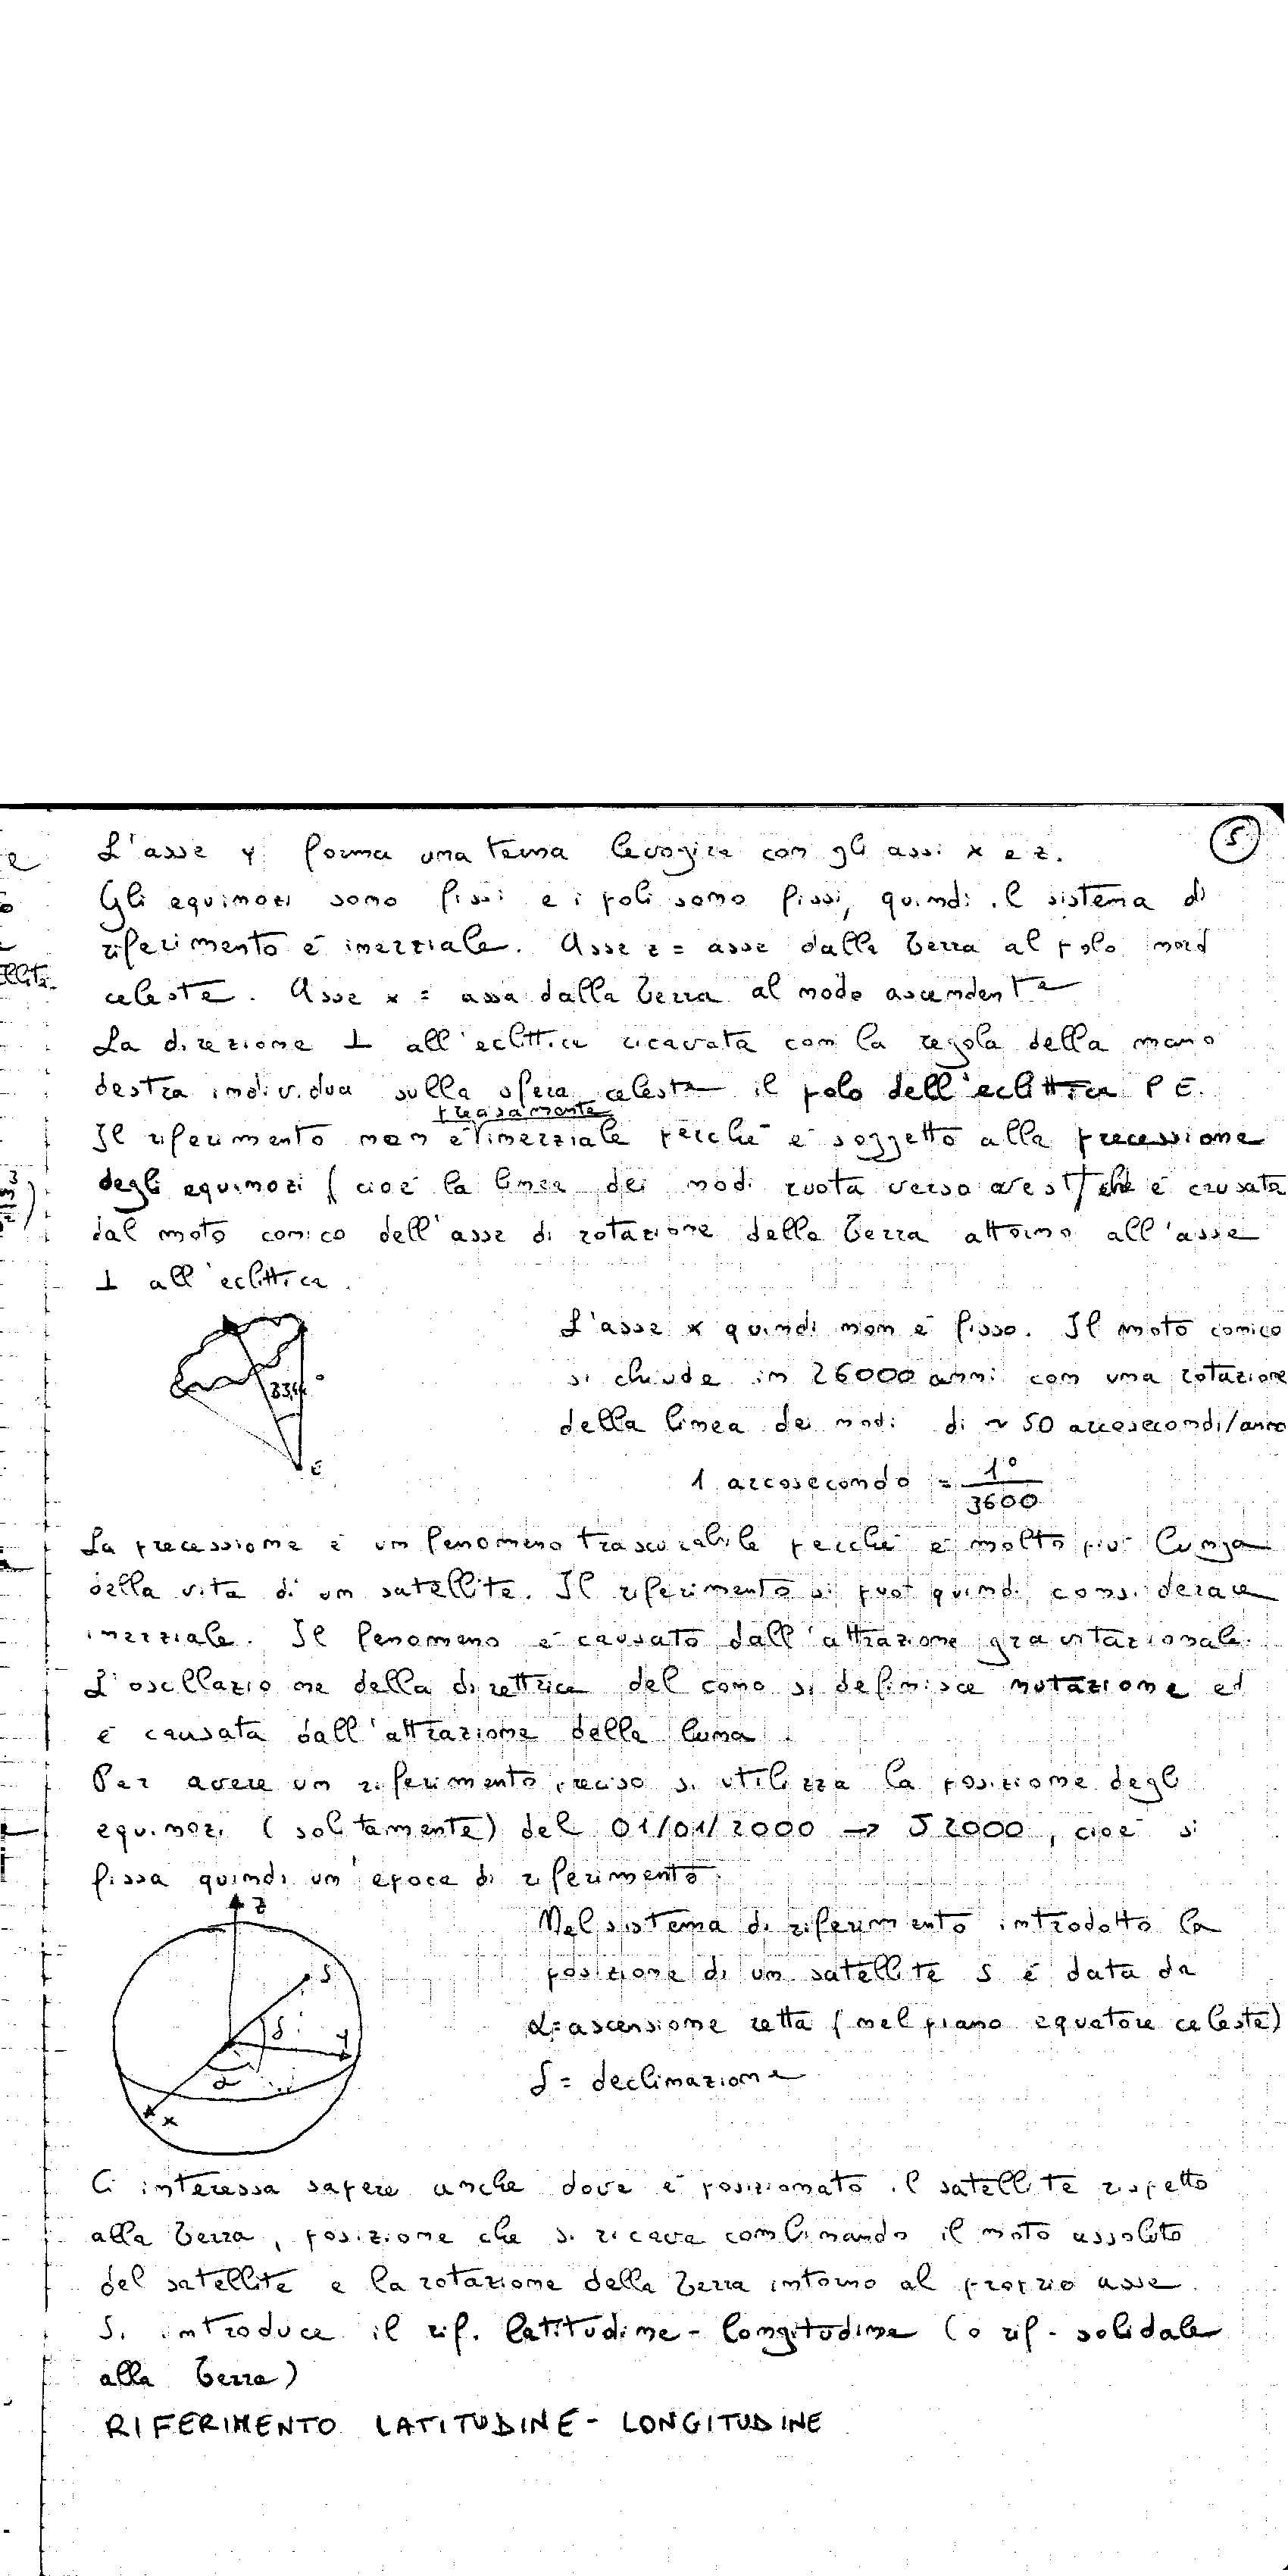 5
L'asse y forma una terna levogira con gli assi x e z.
Gli equinozi sono fissi e i poli sono fissi, quindi il sistema di
riferimento è inerziale. Asse z = asse dalla Terra al polo nord
celeste. Asse x = asse dalla Terra al nodo ascendente
La direzione ⊥ all'eclittica ricavata con la regola della mano
destra individua sulla sfera celeste il polo dell'eclittica PE.
Il riferimento non è inerziale perché è soggetto alla precessione
degli equinozi (cioè la linea dei nodi ruota verso ovest) che è causata
dal moto conico dell'asse di rotazione della Terra attorno all'asse
⊥ all'eclittica.
L'asse x quindi non è fisso. Il moto conico
si chiude in 26000 anni con una rotazione
della linea dei nodi di ~ 50 arcosecondi/anno
1 arcosecondo = 1°/3600
La precessione è un fenomeno trascurabile perché è molto più lunga
della vita di un satellite. Il riferimento si può quindi considerare
inerziale. Il fenomeno è causato dall'attrazione gravitazionale.
L'oscillazione della direttrice del cono si definisce nutazione ed
è causata dall'attrazione della luna.
Per avere un riferimento preciso si utilizza la posizione degli
equinozi (solitamente) del 01/01/2000 → J2000, cioè si
fissa quindi un'epoca di riferimento.
z
S
δ
y
α
x
Nel sistema di riferimento introdotto la
posizione di un satellite S è data da
α = ascensione retta (nel piano equatore celeste)
δ = declinazione
Ci interessa sapere anche dove è posizionato il satellite rispetto
alla Terra, posizione che si ricava combinando il moto assoluto
del satellite e la rotazione della Terra intorno al proprio asse.
Si introduce il rif. latitudine - longitudine (o rif. solidale
alla Terra)
RIFERIMENTO LATITUDINE - LONGITUDINE